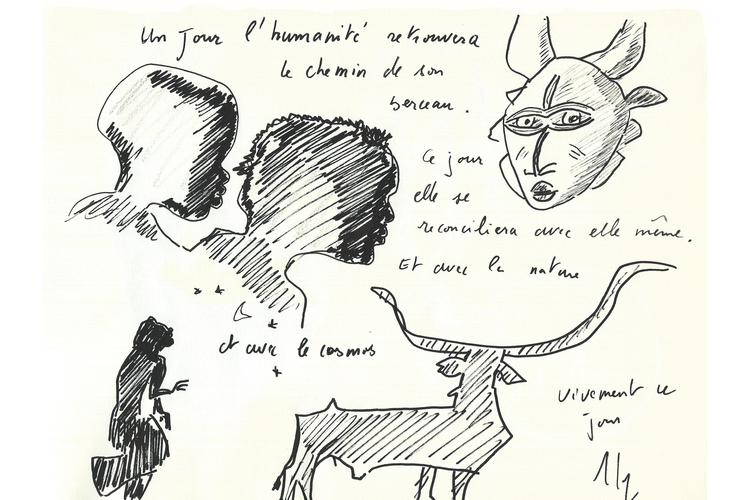 Un jour l'humanité retrouvera
le chemin de son
berceau.
Ce jour
elle se
reconciliera avec elle même.
Et avec la nature
et avec le cosmos
vivement ce
jour